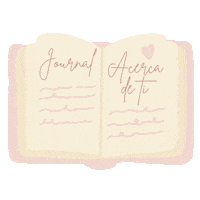 Journal
Acerca
de ti